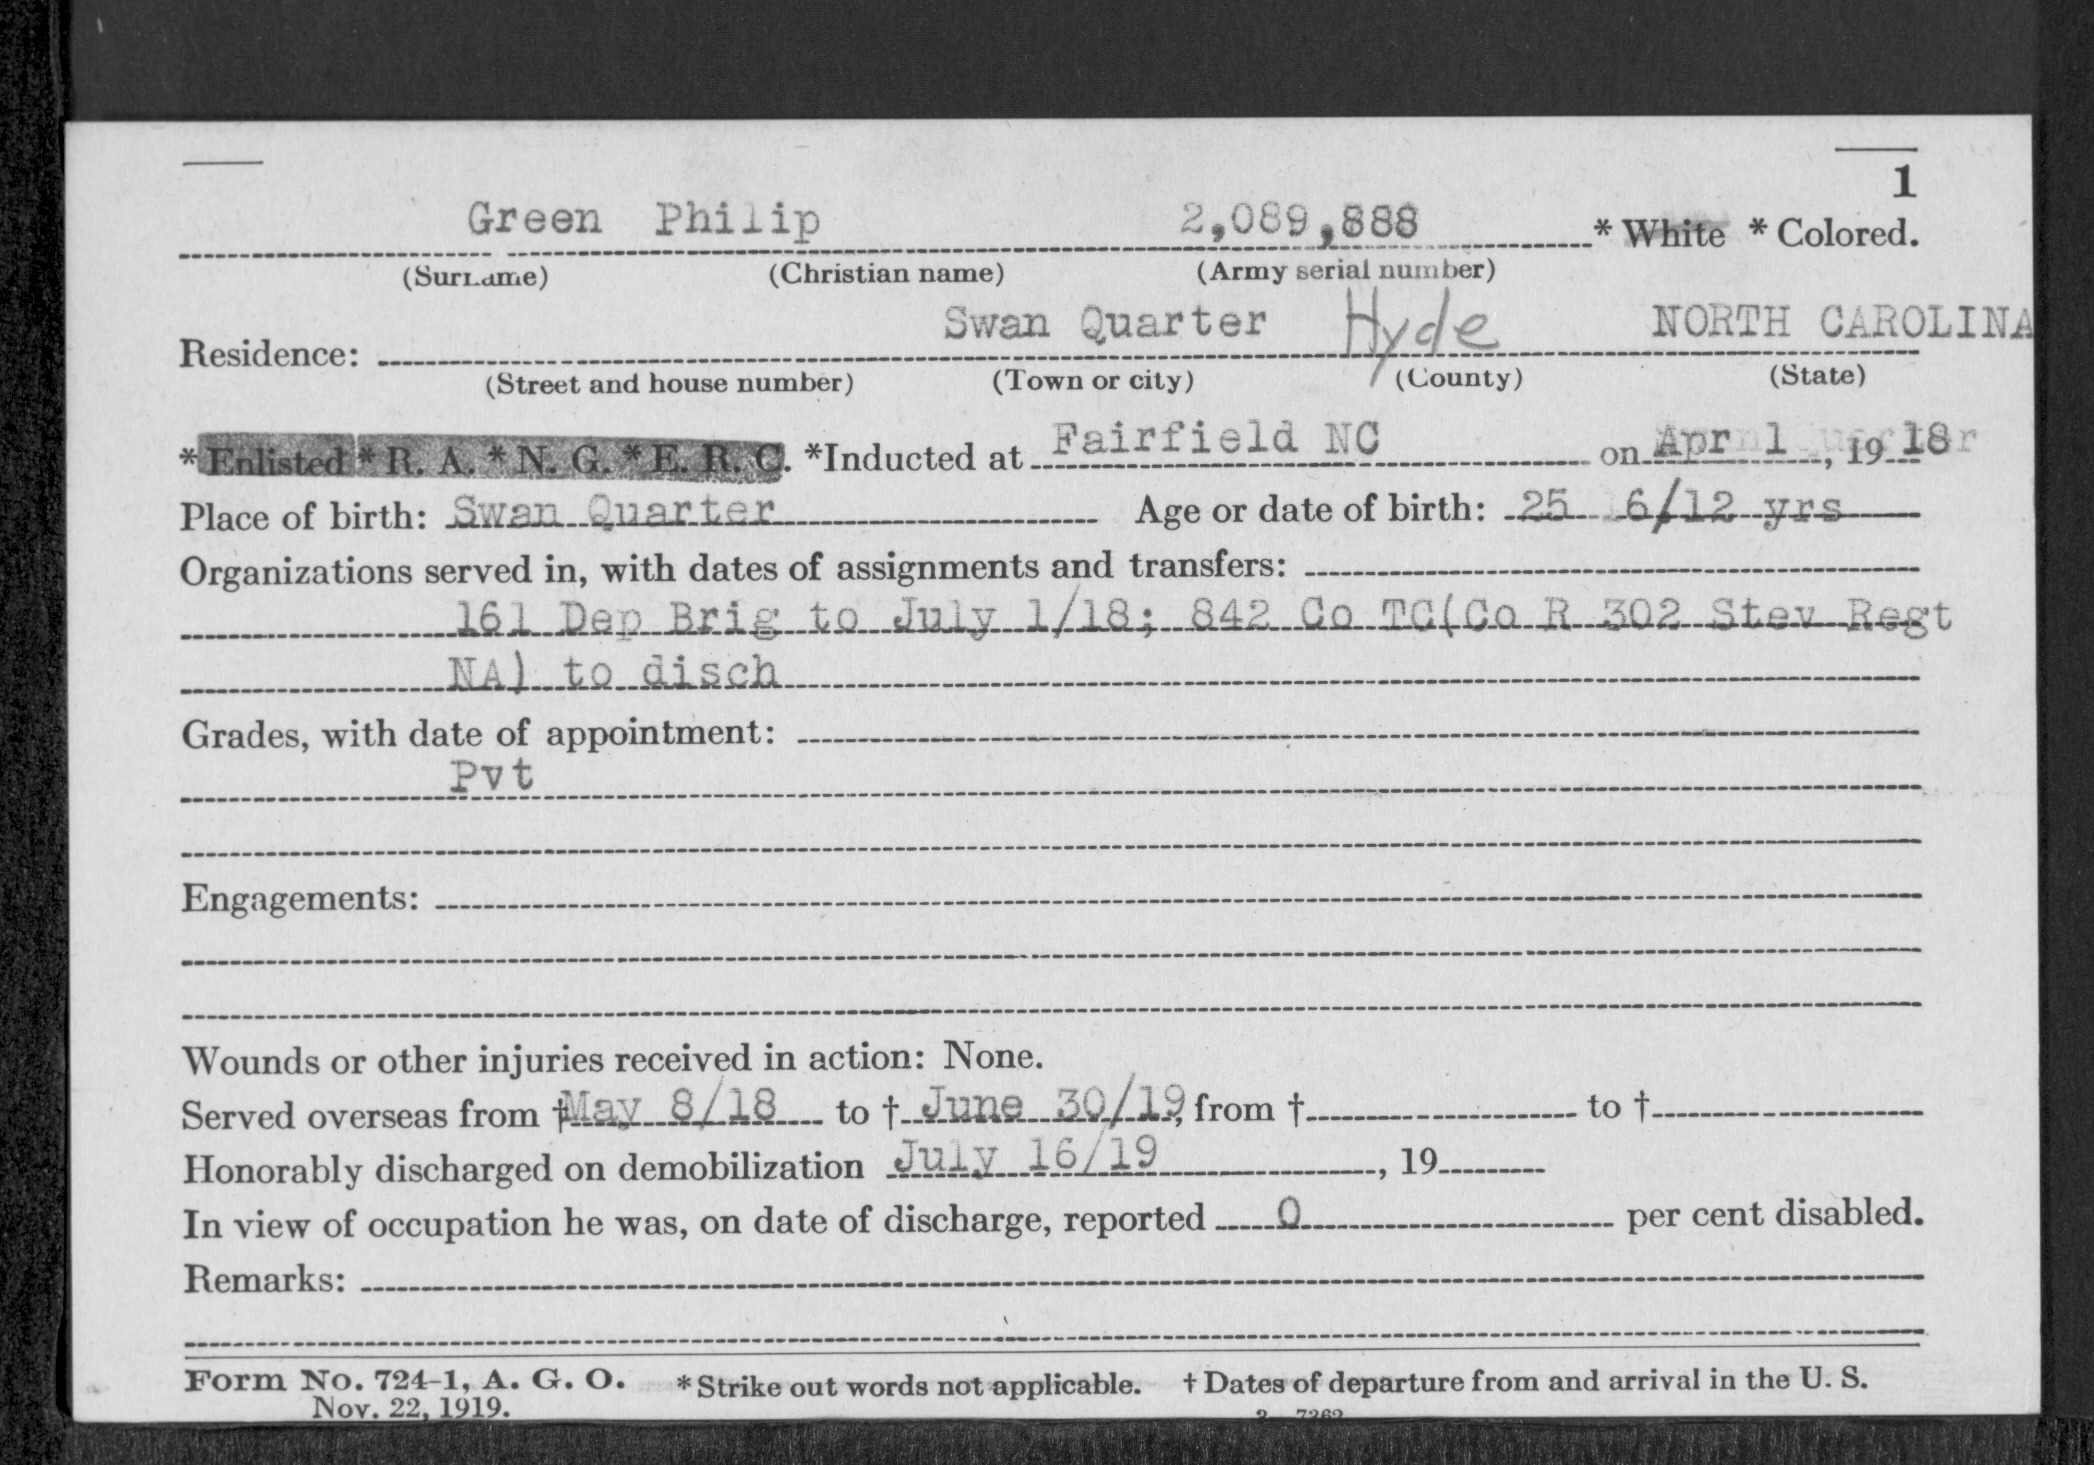 1
Green Philip 2,089,888 * White * Colored.
(Surname) (Christian name) (Army serial number)
Swan Quarter Hyde NORTH CAROLINA
Residence:
(Street and house number) (Town or city) (County) (State)
* Enlisted * R. A. * N. G. * E. R. C. *Inducted at Fairfield NC on Apr 1, 19 18
Place of birth: Swan Quarter Age or date of birth: 25 6/12 yrs
Organizations served in, with dates of assignments and transfers:
161 Dep Brig to July 1/18; 842 Co TC(Co R 302 Stev Regt
NA) to disch
Grades, with date of appointment:
Pvt
Engagements:
Wounds or other injuries received in action: None.
Served overseas from † May 8/18 to † June 30/19, from † to †
Honorably discharged on demobilization July 16/19, 19
In view of occupation he was, on date of discharge, reported 0 per cent disabled.
Remarks:
Form No. 724-1, A. G. O. *Strike out words not applicable. † Dates of departure from and arrival in the U. S.
Nov. 22, 1919.